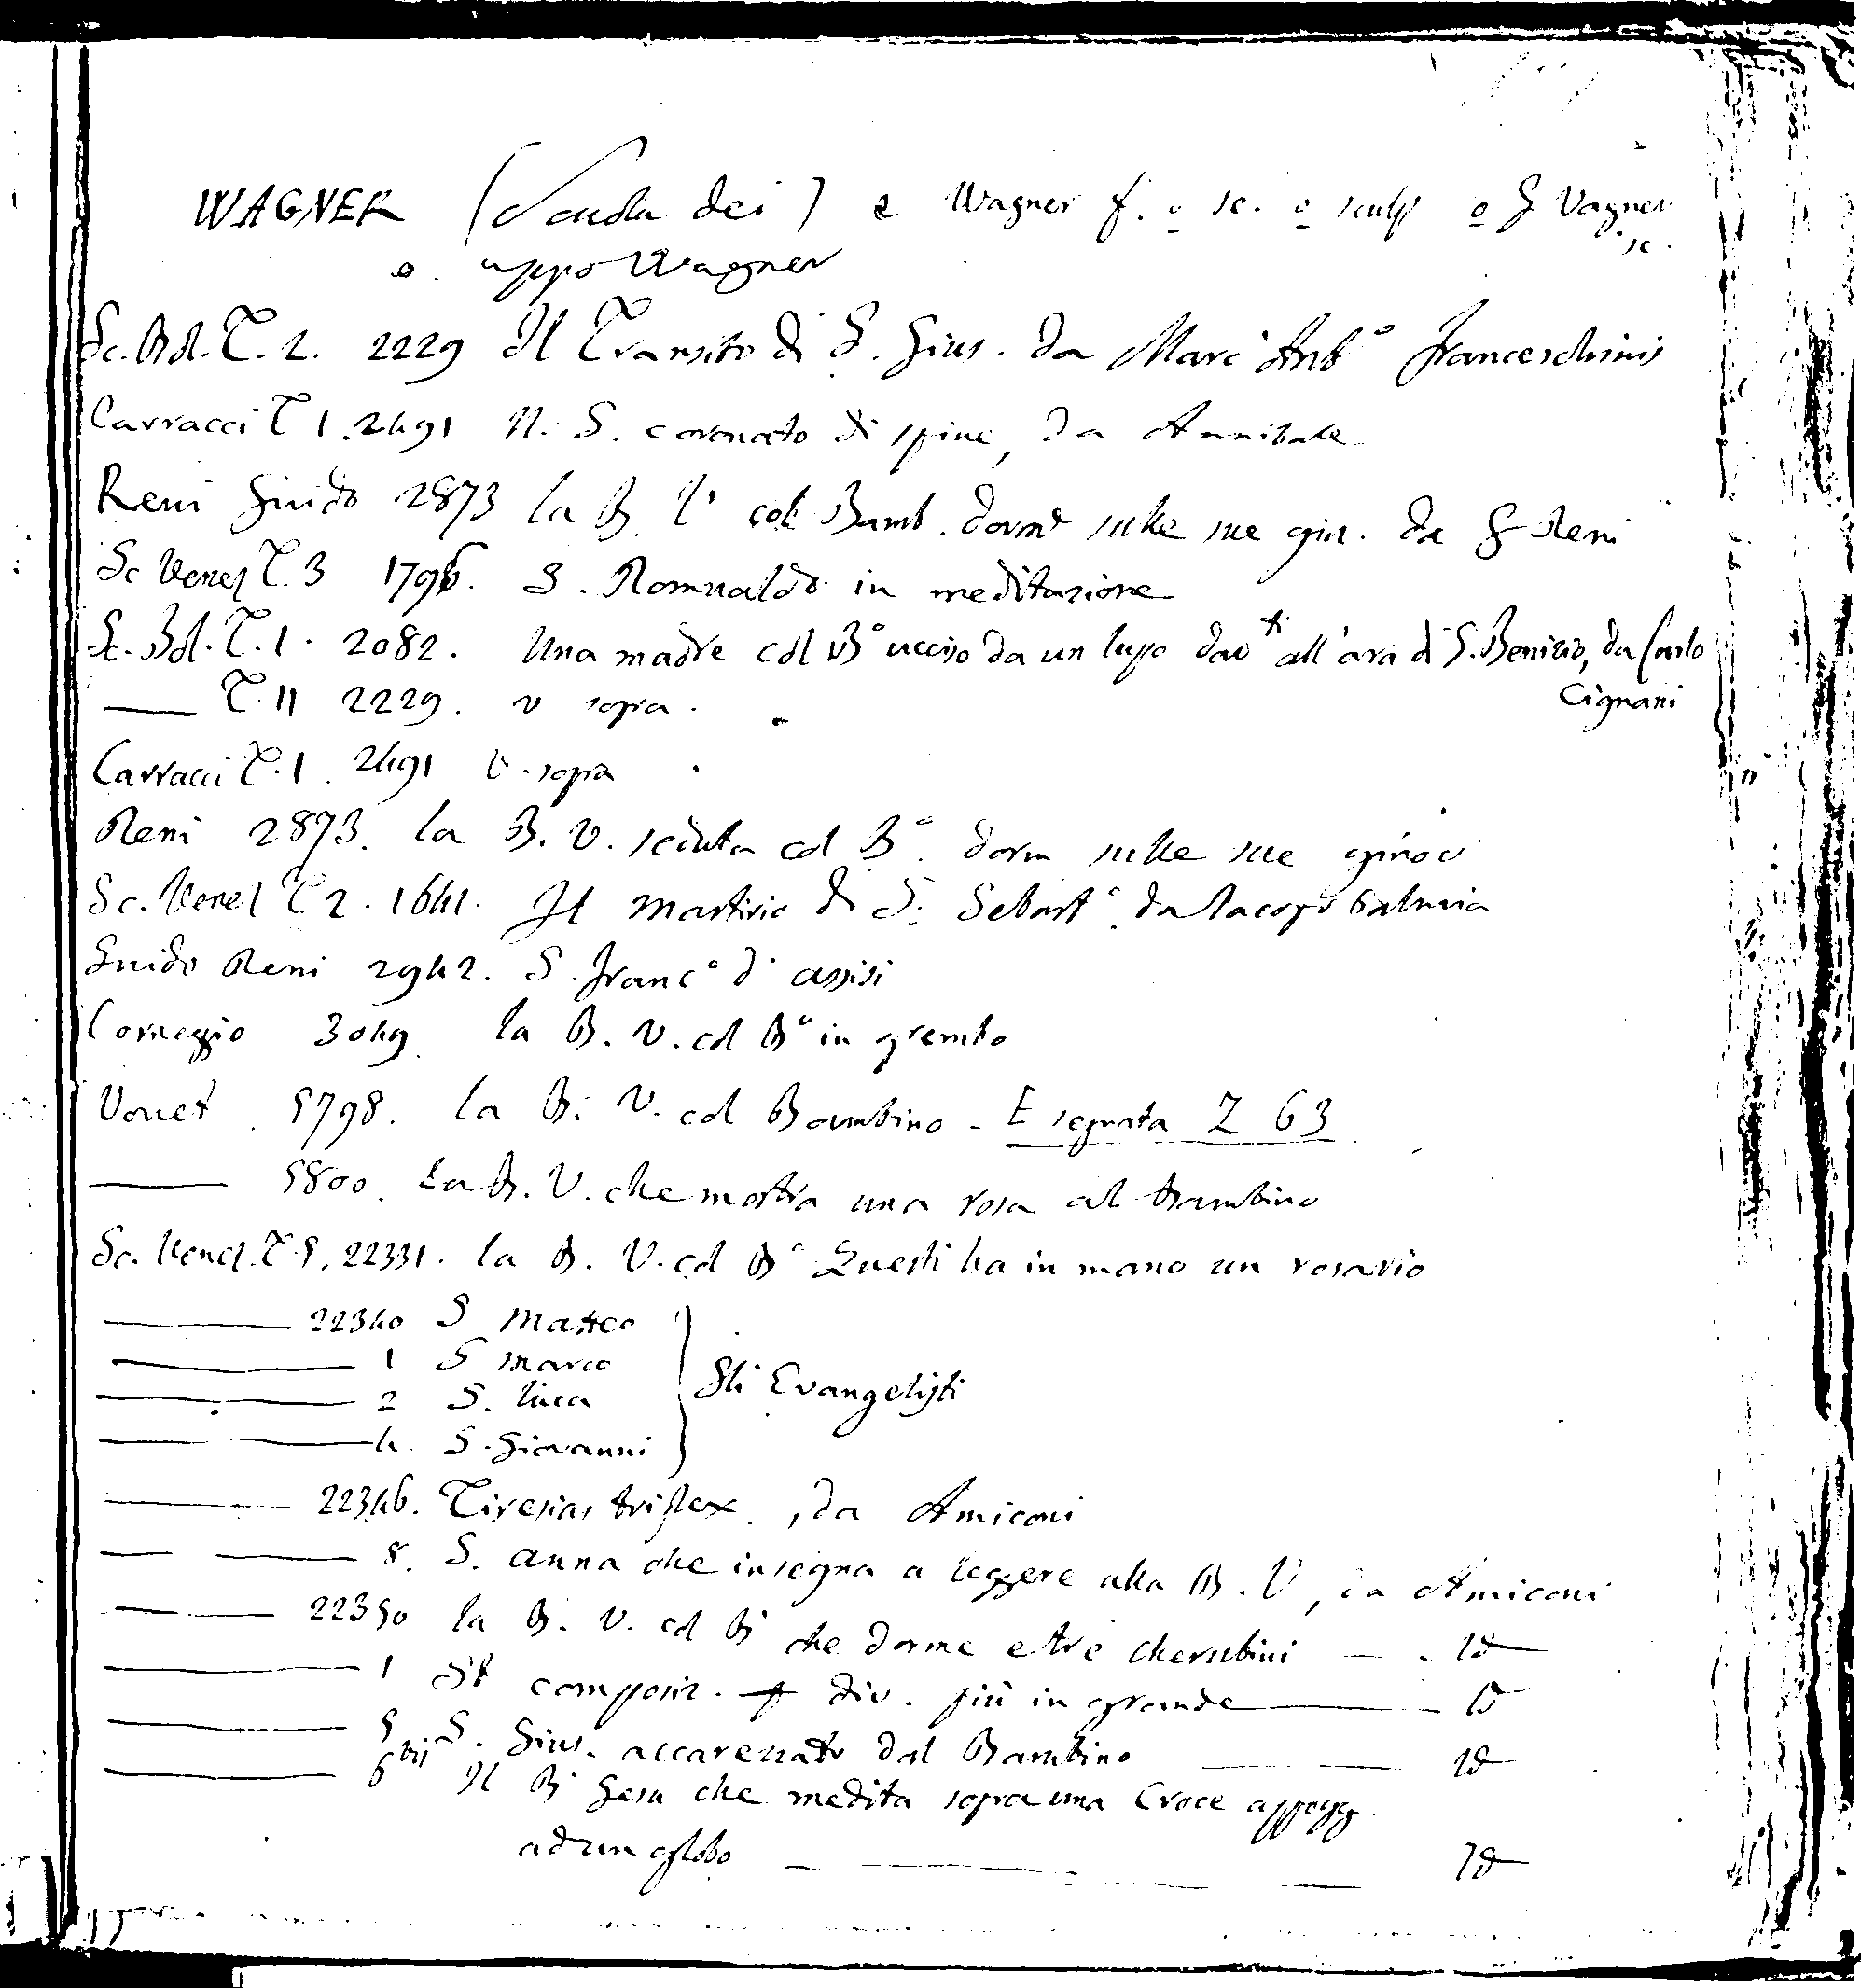 WAGNER (Scuola dei) e Wagner f. o sc. o sculp o G Vagner sc.
o. appo Wagner
Sc. Bol. T. 2. 2229 Il Transito di S. Gius. da Marc' Ant.º Franceschinis
Carracci T 1. 2491 N. S. coronato di spine, da Annibale
Reni Guido 2873 la B. V. col Bamb. dorm.e sulle sue gin. da G Reni
Sc Venez T. 3 1796. S. Romualdo in meditazione
Sc. Bol. T. 1. 2082. Una madre col B.º ucciso da un lupo dav.ti all'ara di S. Benizio, da Carlo Cignani
—— T. II 2229. v sopra.
Carracci T. 1. 2491 v. sopra
Reni 2873. la B. V. seduta col B.º dorm sulle sue ginoc
Sc. Venez T 2. 1641. Il martirio di S. Sebast.º da Jacopo Palma
Guido Reni 2942. S. Franc.º d'assisi
Correggio 3049 la B. V. col B.º in grembo
Vouet 5798. la B. V. col Bambino - E segnata Z 63
—— 5800. La B. V. che mostra una rosa al bambino
Sc. Venez. T. 5. 22331. la B. V. col B.º Questi ha in mano un rosario
—— 22340 S Matteo
—— 1 S Marco
—— 2 S. Luca Gli Evangelisti
—— 4. S. Giovanni
—— 22346. Tiresias triplex, da Amiconi
—— 8. S. anna che insegna a leggere alla B. V, da Amiconi
—— 22350 la B. V. col B.º che dorme e tre cherubini — id
—— 1 St composiz. div. più in grande —— id
—— 5 S. Gius. accarezzato dal Bambino —— id
—— 6 bis Il B. Gesu che medita sopra una Croce appogg.
ad un globo —— id